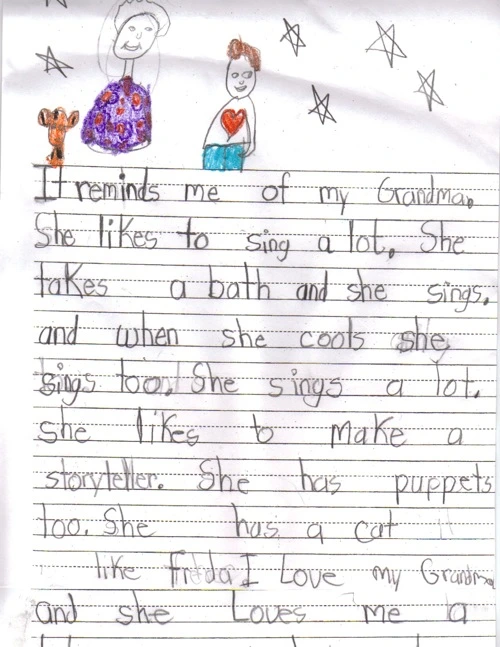 It reminds me of my Grandma.
She likes to sing a lot. She
takes a bath and she sings.
and when she cools she
sings too. She sings a lot.
she likes to make a
storyteller. She has puppets
too. She has a cat
like frida I Love my Grandma
and she Loves me a